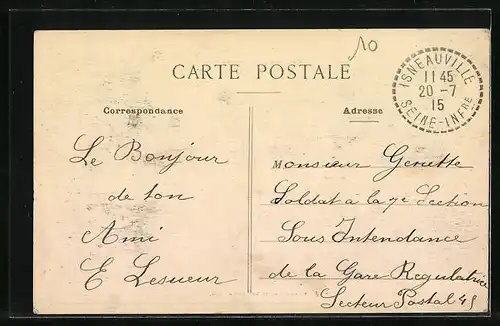 10
CARTE POSTALE
ISNEAUVILLE
11 45
20 - 7
15
SEINE-INFRE
Correspondance
Adresse
Le Bonjour
de ton
Ami
E Lesueur
Monsieur Genette
Soldat à la 7e Section
Sous Intendance
de la Gare Regulatrice
Secteur Postal 45